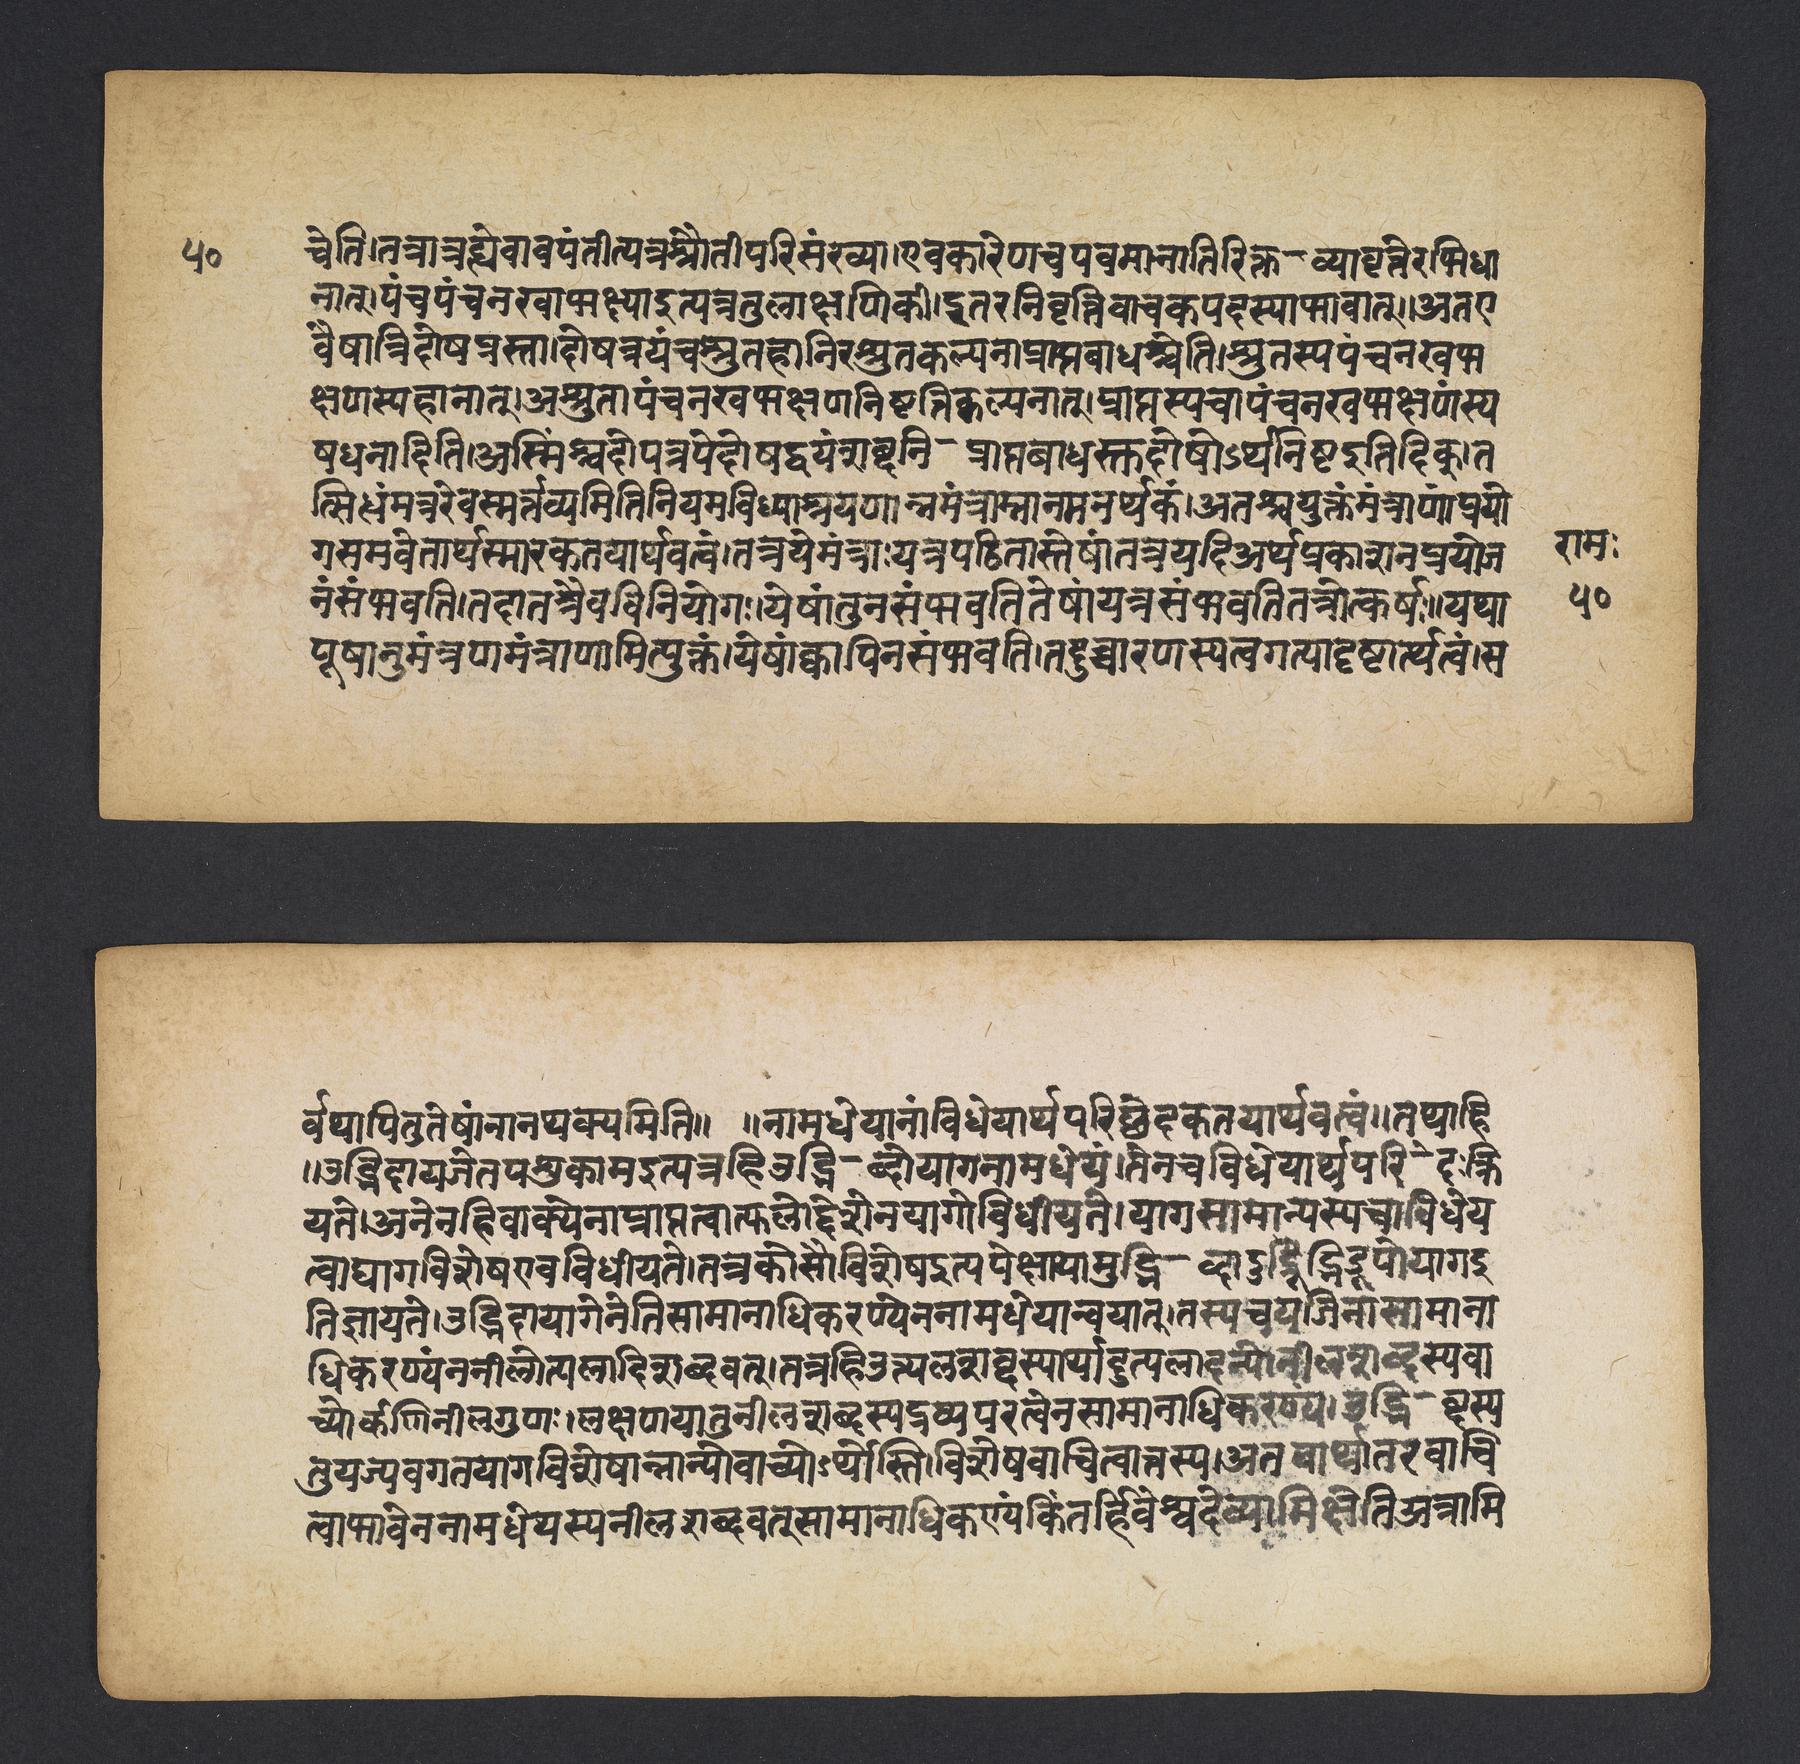 ५०
चेति।तत्रात्रह्येवावपंतीत्यत्रश्रौतीपरिसंख्या।एवकारेणचपवमानातिरिक्त-व्यावृत्तेरभिधा
नात्।पंचपंचनखाभक्ष्याइत्यत्रतुलाक्षणिकी।इतरनिवृत्तिवाचकपदस्याभावात्।।अतए
वैषात्रिदोषग्रस्ता।दोषत्रयंचश्रुतहानिरश्रुतकल्पनाप्राप्तबाधश्चेति।श्रुतस्यपंचनखभ
क्षणस्यहानात्।अश्रुतापंचनखभक्षणनिवृत्तिकल्पनात्।प्राप्तस्यचापंचनखभक्षणंस्य
षधनादिति।अस्मिंश्चदोपत्रयेदोषद्वयंशब्दनि-प्राप्तबाधस्तुदोषोऽर्थनिष्टइतिदिक्।त
त्सिधंमंत्रैरेवस्मर्त्तव्यमितिनियमविध्याश्रयणान्नमंत्राम्नानमनर्थकं।अतश्चयुक्तंमंत्राणांप्रयो
गसमवेतार्थस्मारकतयार्थवत्वं।तत्रयेमंत्राःयत्रपठितास्तेषांतत्रयदिअर्थप्रकाशनप्रयोज
नंसंभवति।तदातत्रैवविनियोगः।येषांतुनसंभवतितेषांयत्रसंभवतितत्रोत्कर्षः।।यथा
पूषानुमंत्रणमंत्राणामित्युक्तं।येषांक्वापिनसंभवति।तदुच्चारणस्यत्वगत्यादृष्टार्त्थत्वं।स
रामः
५०
र्वथापितुतेषांनानथक्यमिति।। ।।नामधेयानांविधेयार्थपरिछेदकतयार्थवत्वं।।तथाहि
।।उद्भिदायजेतपशुकामइत्यत्रहिउद्भि-ब्दोयागनामधेयं।तेनचविधेयार्थपरि-दःक्रि
यते।अनेनहिवाक्येनाप्राप्तत्वात्फलोद्देशेनयागोविधीयते।यागसामान्यस्यचाविधेय
त्वाद्यागविशेषएवविधीयते।तत्रकोसौविशेषइत्यपेक्षायामुद्भि-ब्दादुद्भिद्रूपोयागइ
तिज्ञायते।उद्भिदायागेनेतिसामानाधिकरण्येननामधेयान्वयात्।तस्यचयजिनासामाना
धिकरण्यंननीलोत्पलादिशब्दवत्।तत्रहिउत्पलशब्दस्यार्थादुत्पलादन्योनीलशब्दस्यवा
च्योर्कणिनीलगुणः।लक्षणयातुनीलशब्दस्यद्रव्यपरत्वेनसामानाधिकरण्यं।उद्भि-ब्दस्य
तुयज्यवगतयागविशेषान्नान्योवाच्योऽर्थोस्ति।विशेषवाचित्वात्तस्य।अतएवार्थांतरवाचि
त्वाभावेननामधेयस्यनीलशब्दवत्सामानाधिकण्यंकिंतर्हिवैश्वदेव्यामिक्षेतिअत्रामि